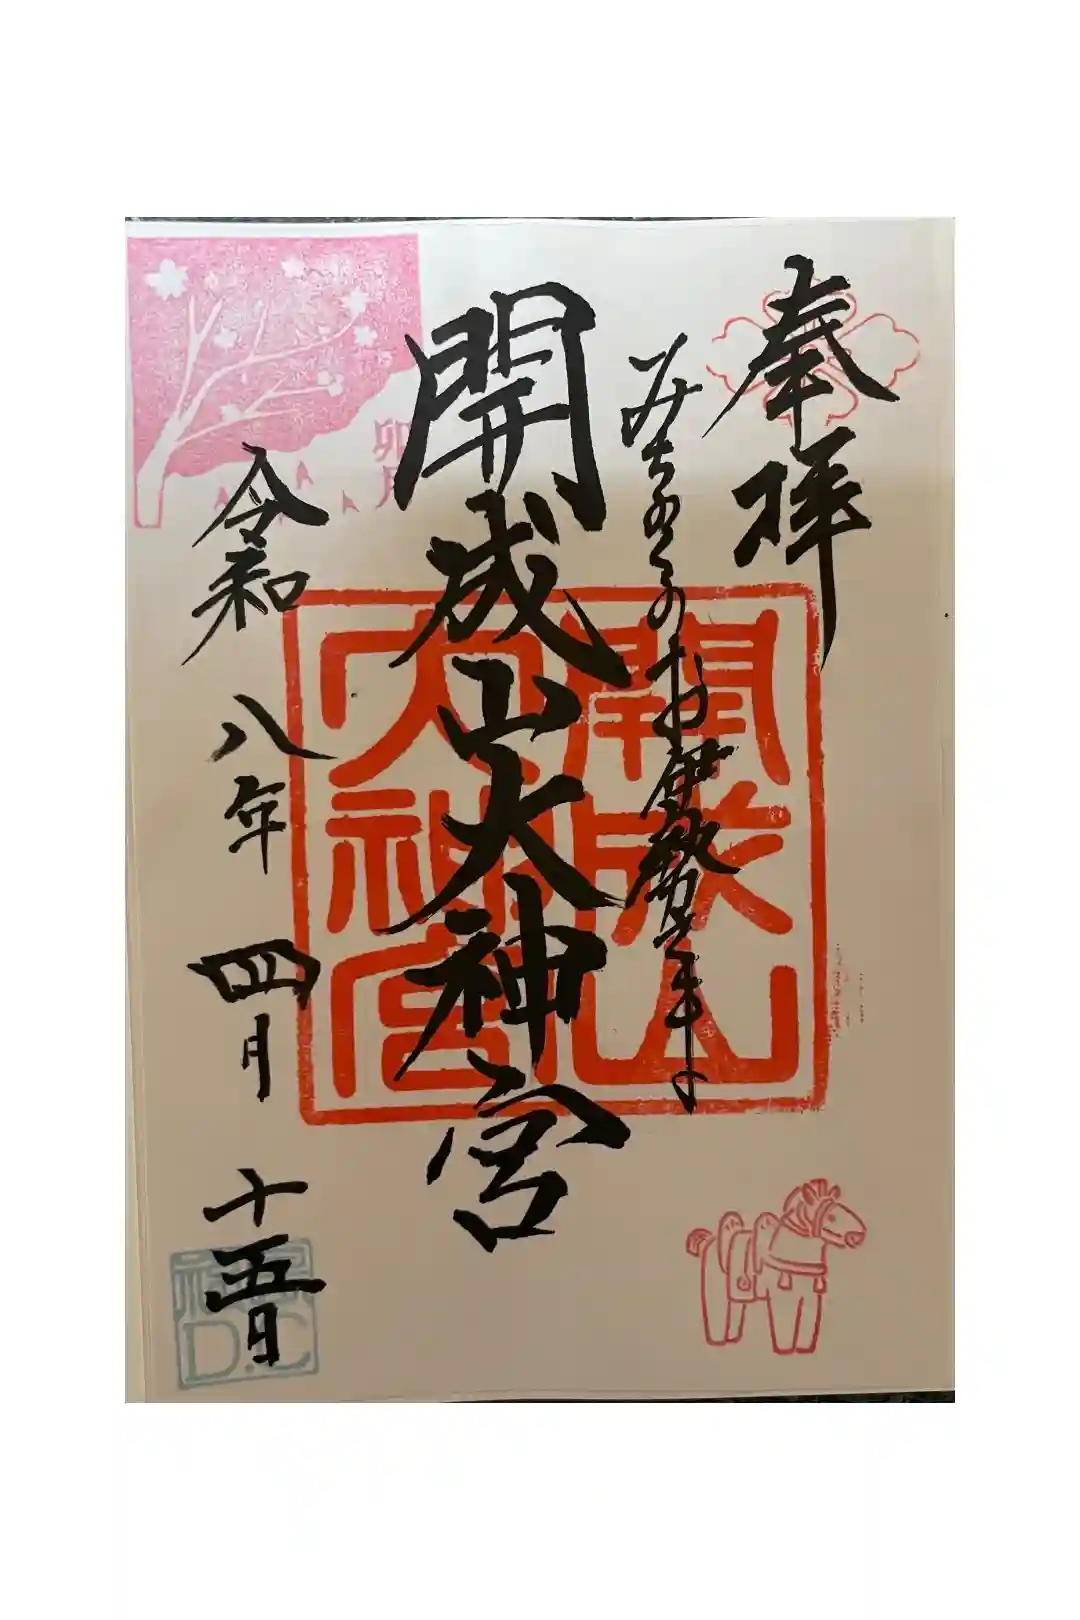 奉拝
みちのくのお伊勢さま
開成山大神宮
開成山
大神宮
卯月
令和八年四月十五日
福島
D.C